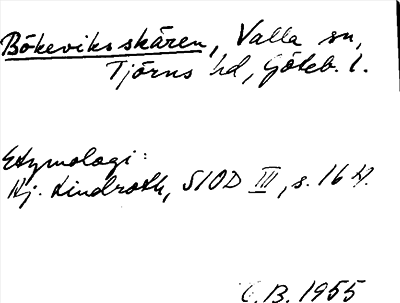 Bökeviksskären, Valla sn,
Tjörns hd, Göteb. l.
Etymologi:
Hj. Lindroth, SIOD III, s. 164.
C.B. 1955